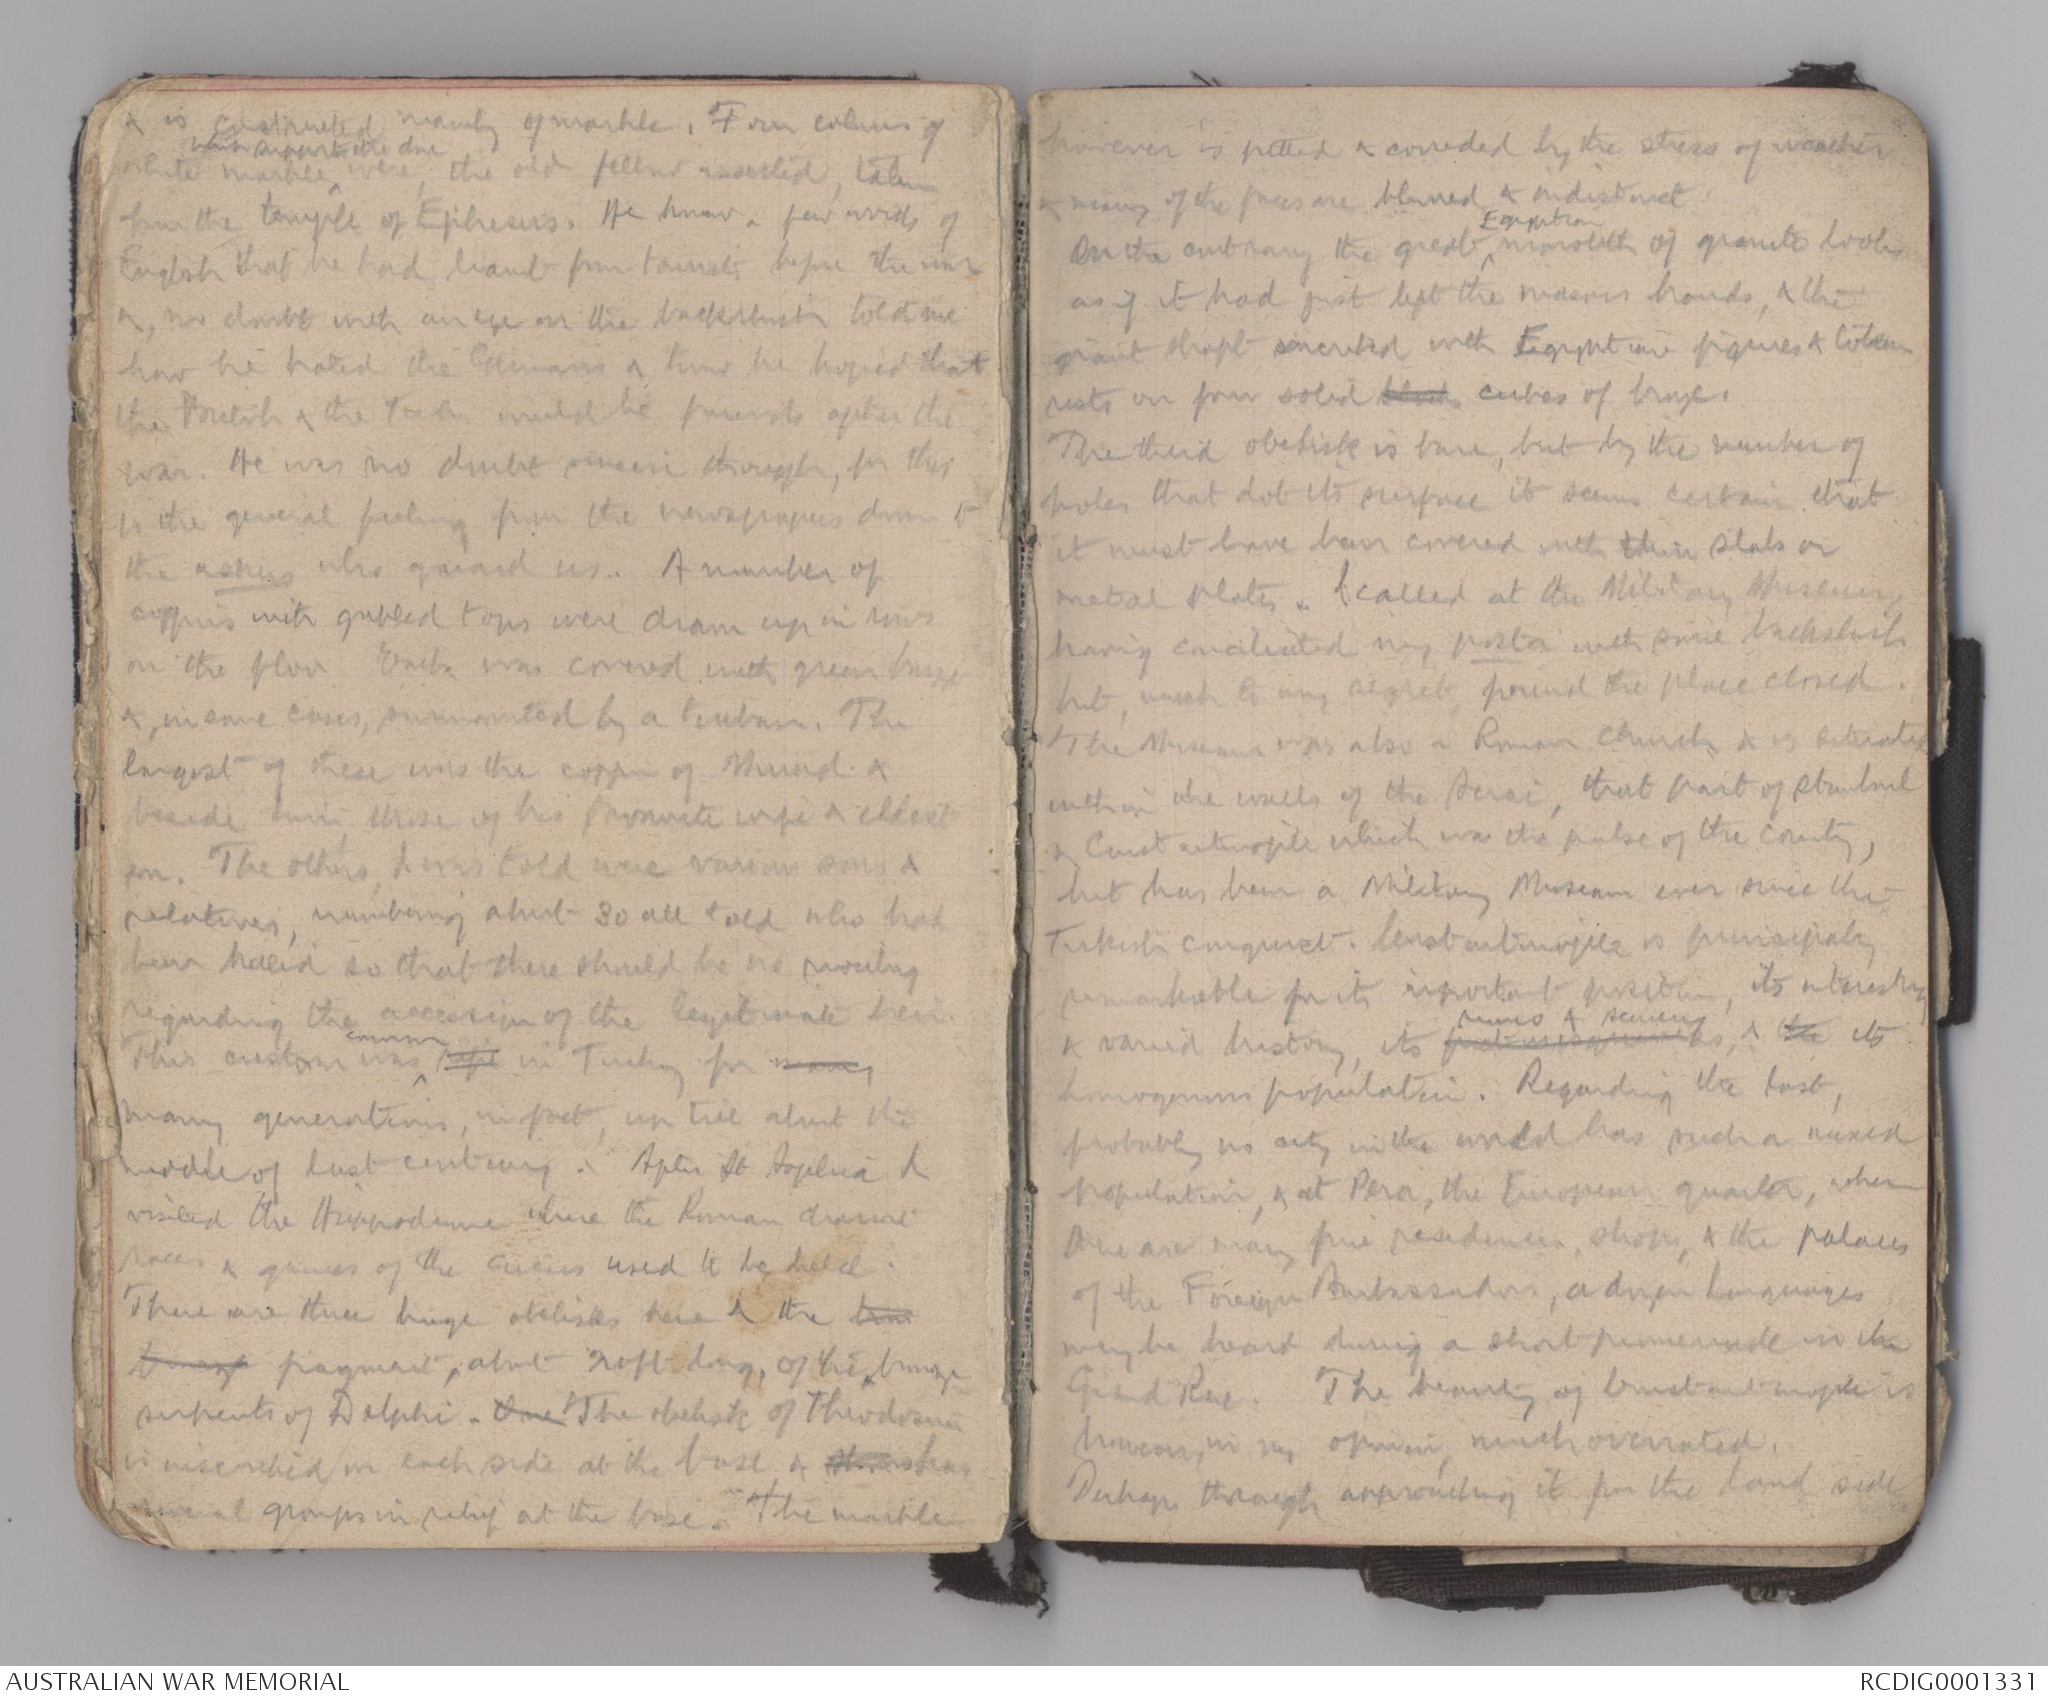 & is constructed mainly of marble. Four colums of
which support the dome
white marble were, the old fellow asserted, taken
from the temple of Ephesus. He knew a few words of
English that he had learnt from tourists before the war
&, no doubt with an eye on the backshish told me
how he hated the Germans & how he hoped that
the British & the Turks would be friends after the
war. He was no doubt sincere though, for this
is the general feeling from the newspapers down to
the askers who guard us. A number of
coffins with gabled tops were drawn up in rows
on the floor. Each was covered with green baize
&, in some cases, surmounted by a turban. The
largest of these was the coffin of Murad &
beside him, those of his favourite wife & eldest
son. The others, I was told were various sons &
relatives, numbering about 30 all told who had
been killed so that there should be no
regarding the accession of the legitimate heir.
common
This custom was in Turkey for many
many generations, in fact, up till about the
middle of last century. After St Sophia I
visited the Hippodrome where the Roman chariot
races & games of the circus used to be held.
There are three huge obelisks here & the
fragment, about 20ft long, of the bronze
serpents of Delphi. The obelisk of Theodosius
is inscribed on each side at the base & has
several groups in relief at the base. The marble
however is pitted & corroded by the stress of weather
& many of the faces are blurred & indistinct.
Egyptian
On the contrary the great monolith of granite looks
as if it had just left the masons hands, & the
giant shaft encircled with Egyptian figures &
rests on four solid blocks cubes of bronze.
The third obelisk is bare, but by the number of
holes that dot its surface it seems certain that
it must have been covered with thin slabs or
metal plates. I called at the Military Museum,
having conciliated my posta with some backshish
but, much to my regret, found the place closed.
The Museum was also a Roman church & is situated
within the walls of the Serai, that part of Stambul
or Constantinople which was the pulse of the country,
but has been a Military Museum ever since the
Turkish conquest. Constantinople is principally
remarkable for its important position, its interesting
ruins & scenery
& varied history, its & the its
homogenous population. Regarding the last,
probably no city in the world has such a mixed
population, & at Pera, the European quarter, where
there are many fine residences, shops, & the palaces
of the Foreign Ambassadors, a dozen languages
may be heard during a short promenade in the
Grand Rue. The beauty of Constantinople is
however, in my opinion, much overrated.
Perhaps through approaching it from the land side
AUSTRALIAN WAR MEMORIAL
RCDIG0001331